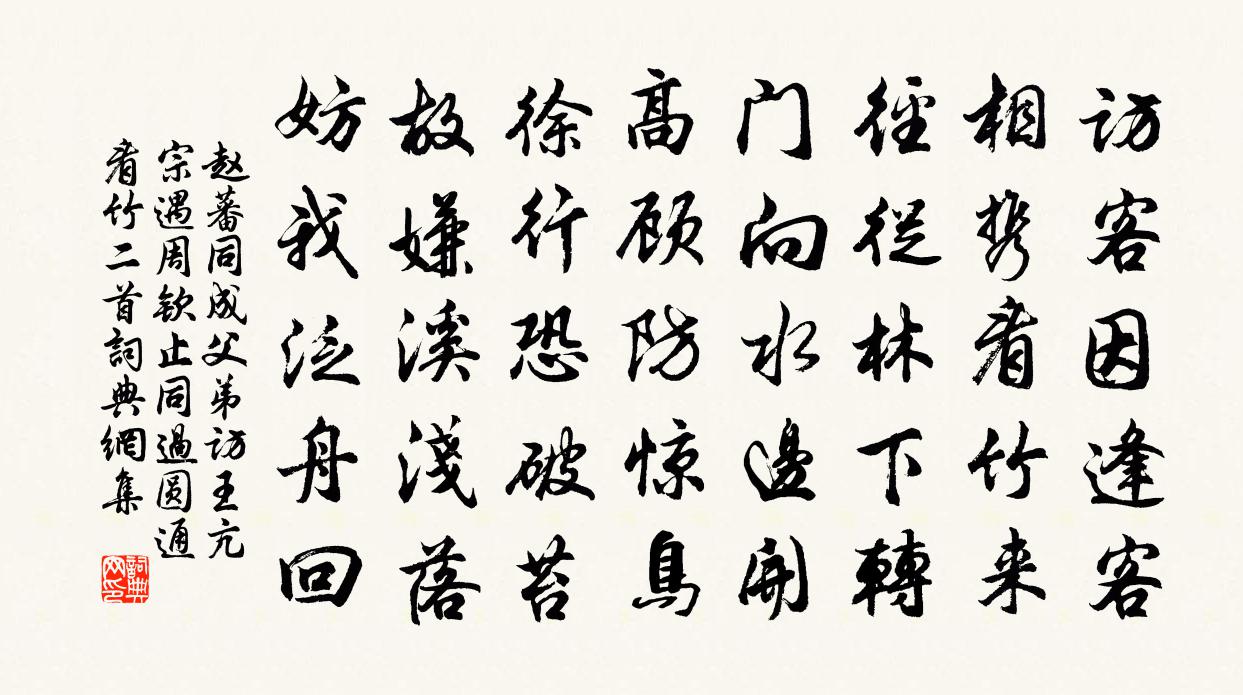 访客因逢客
相携看竹来
徑從林下轉
门向水邊開
高顾防惊鳥
徐行恐破苔
故嫌溪淺落
妨我泛舟回
赵蕃同成父弟访王亢
宗遇周钦止同過圆通
看竹二首詞典網集
詞典网印